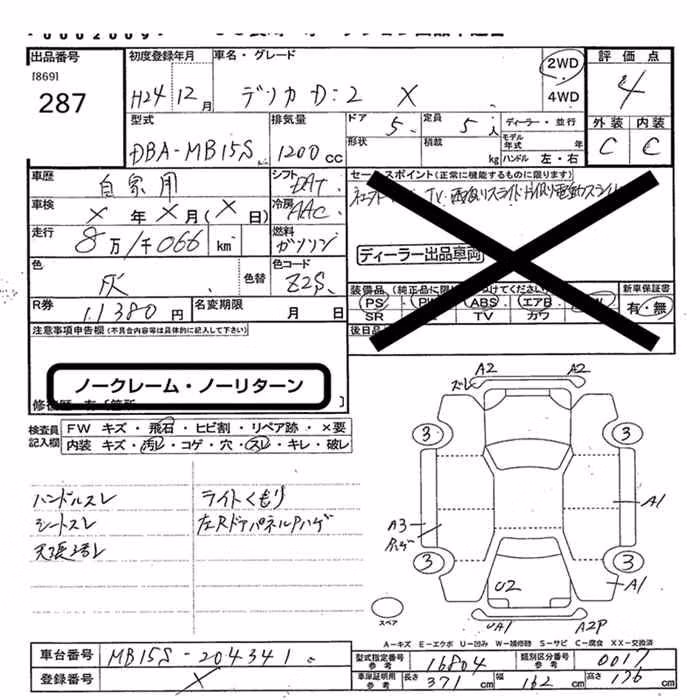 出品番号
[869]
287
初度登録年月
H24年 12月
車名・グレード
デリカD:2 X
2WD
4WD
評価点
4
外装 内装
C C
型式
DBA-MB15S
排気量
1200cc
ドア
5
定員
5人
ディーラー・並行
形状
積載
kg
モデル年式 年
ハンドル 左・右
車歴
自家用
シフト
車検
X年X月(X日)
冷房
AAC
走行
8万/千066 km
燃料
ガソリン
色
灰
色替
色コード
Z2S
R券
11380円
名変期限
月 日
セールスポイント(正常に機能するものに限ります)
TV
ディーラー出品車両
装備品
新車保証書
PS ABS エアB
有・無
SR TV カワ
後日品
注意事項申告欄(不具合内容等は具体的に記入して下さい)
ノークレーム・ノーリターン
検査員記入欄
FW キズ・飛石・ヒビ割・リペア跡・×要
内装 キズ・汚レ・コゲ・穴・スレ・キレ・破レ
ハンドルスレ
シートスレ
ライトくもり
左RドアパネルPハゲ
A2 A2
ズレ
3 3
A1
A3
Pハゲ
3 3
A1
U2
UA1 A2P
スペア
A-キズ E-エクボ U-凹み W-補修跡 S-サビ C-腐食 XX-交換済
車台番号
MB15S-204341
登録番号
X
型式指定番号 参考
16804
類別区分番号 参考
0017
車庫証明用 参考
長さ 371cm 幅 162cm 高さ 176cm